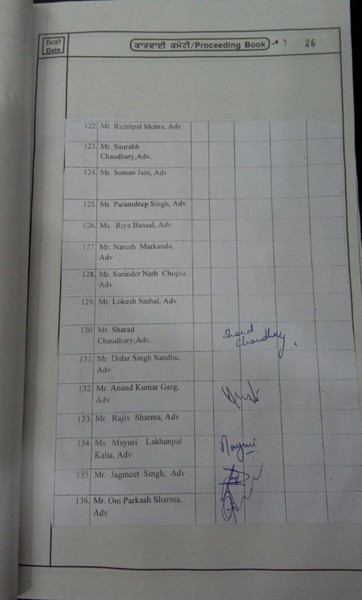 ਮਿਤੀ
Date
ਕਾਰਵਾਈ ਕਮੇਟੀ/Proceeding Book
7 26
122. Mr. Richhpal Mehra, Adv
123. Mr. Saurabh
Chaudhary,Adv.
124. Mr. Suman Jain, Adv
125. Mr. Paramdeep Singh, Adv
126. Ms. Riya Bansal, Adv
127. Mr. Naresh Markanda,
Adv
128. Mr. Surinder Nath Chopra,
Adv
129. Mr. Lokesh Sinhal, Adv
130. Mr. Sharad
Chaudhary,Adv.
Sharad
Chaudhary,
131. Mr. Didar Singh Sandhu,
Adv
132. Mr. Anand Kumar Garg,
Adv
133. Mr. Rajiv Sharma, Adv
134. Ms. Mayuri Lakhanpal
Kalia, Adv
Mayuri
135. Mr. Jagmeet Singh, Adv
136. Mr. Om Parkash Sharma,
Adv